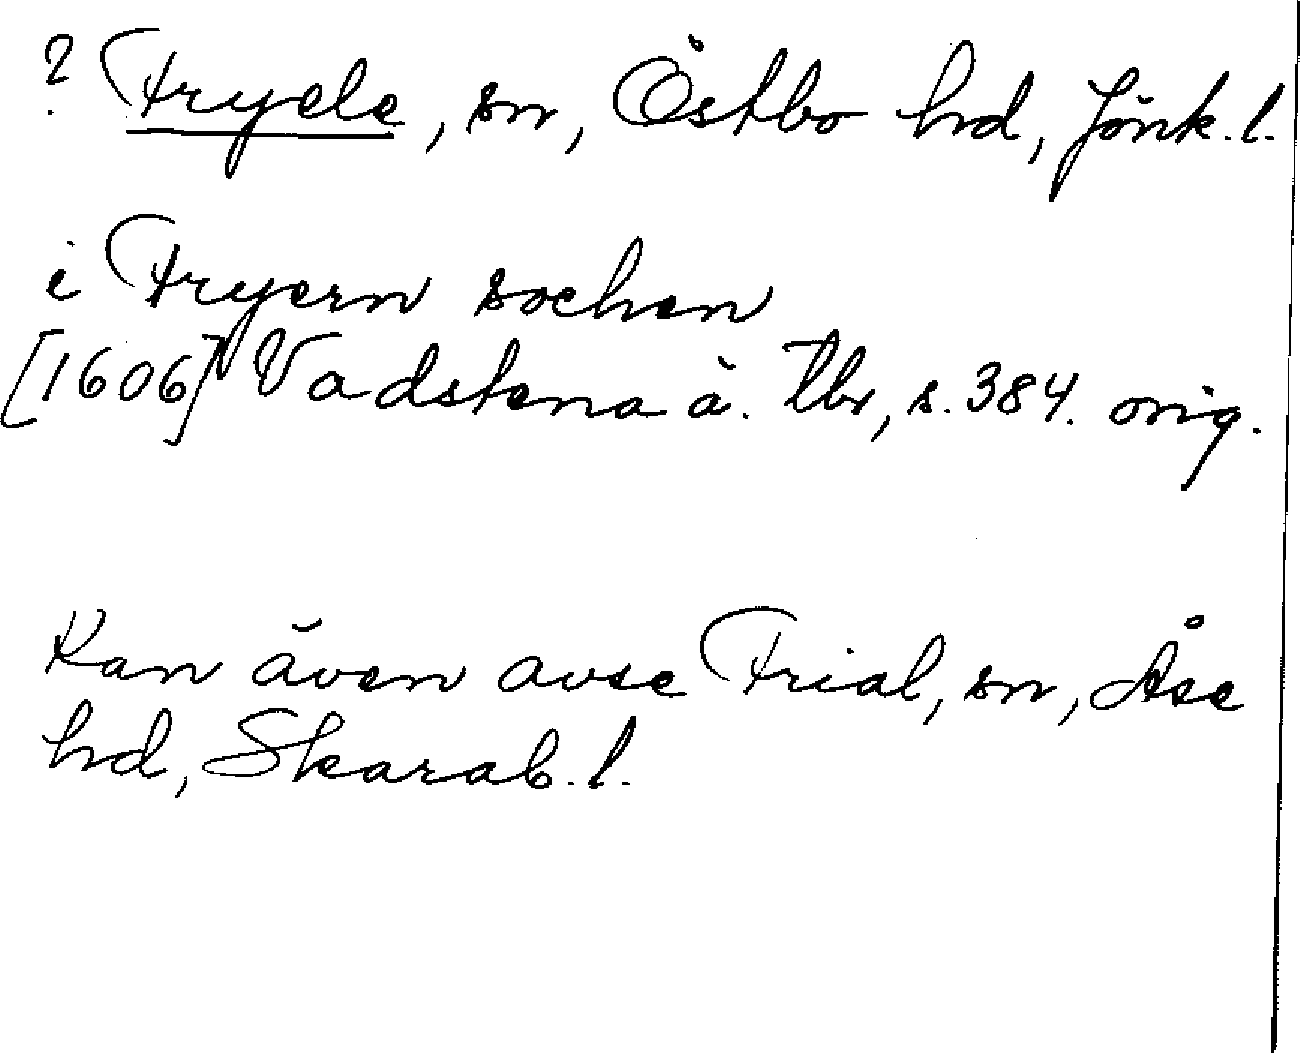 ? Fryele, sn, Östbo hd, Jönk. l.
i Fryern sochen
[1606] Vadstena ä. tbr, s. 384. orig.
Kan även avse Friel, sn, Åse
hd, Skarab. l.